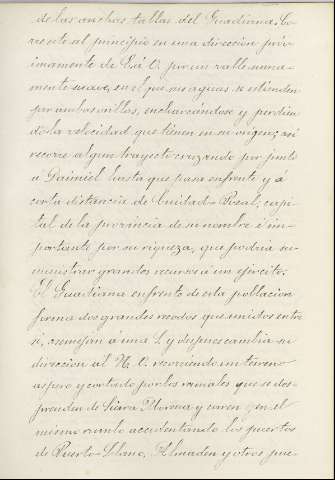 de las anchas tablas del Guadiana. Co-
rriente al principio en una dirección próx-
imamente de E. á O. por un valle suma-
mente suave, en el que sus aguas se estienden
por ambas orillas, encharcándose y perdien-
do la velocidad que tienen en su origen; así
recorre algun trayecto cruzando por junto
á Daimiel hasta que pasa enfrente y á
corta distancia de Ciudad-Real, capi-
tal de la provincia de su nombre é im-
portante por su riqueza, que podria su-
ministrar grandes recursos á un ejército.
El Guadiana enfrente de esta poblacion
forma dos grandes recodos que unidos entre
sí, asemejan á una S, y despues cambia su
direccion al N. O. recorriendo un terreno
aspero y cortado por los ramales que se des-
prenden de Sierra Morena y corren en el
mismo rumbo accidentando los puertos
de Puerto-Llano, Almaden y otros pue-